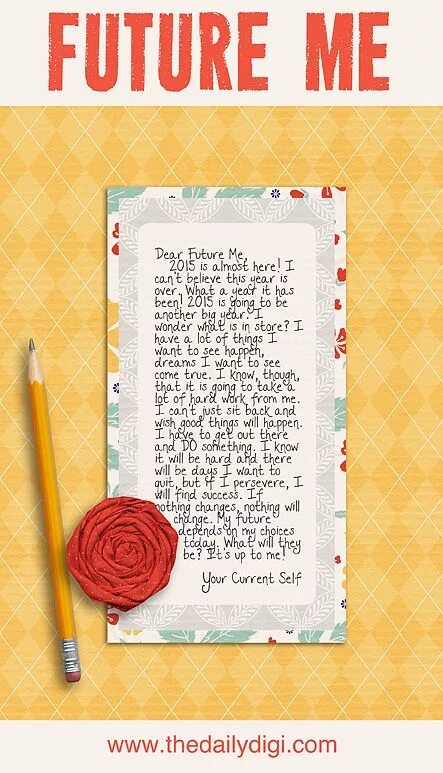 FUTURE ME
Dear Future Me,
2015 is almost here! I
can't believe this year is
over. What a year it has
been! 2015 is going to be
another big year. I
wonder what is in store? I
have a lot of things I
want to see happen,
dreams I want to see
come true. I know, though,
that it is going to take a
lot of hard work from me.
I can't just sit back and
wish good things will happen.
I have to get out there
and DO something. I know
it will be hard and there
will be days I want to
quit, but if I persevere, I
will find success. If
nothing changes, nothing will
change. My future
depends on my choices
today. What will they
be? It's up to me!
Your Current Self
www.thedailydigi.com